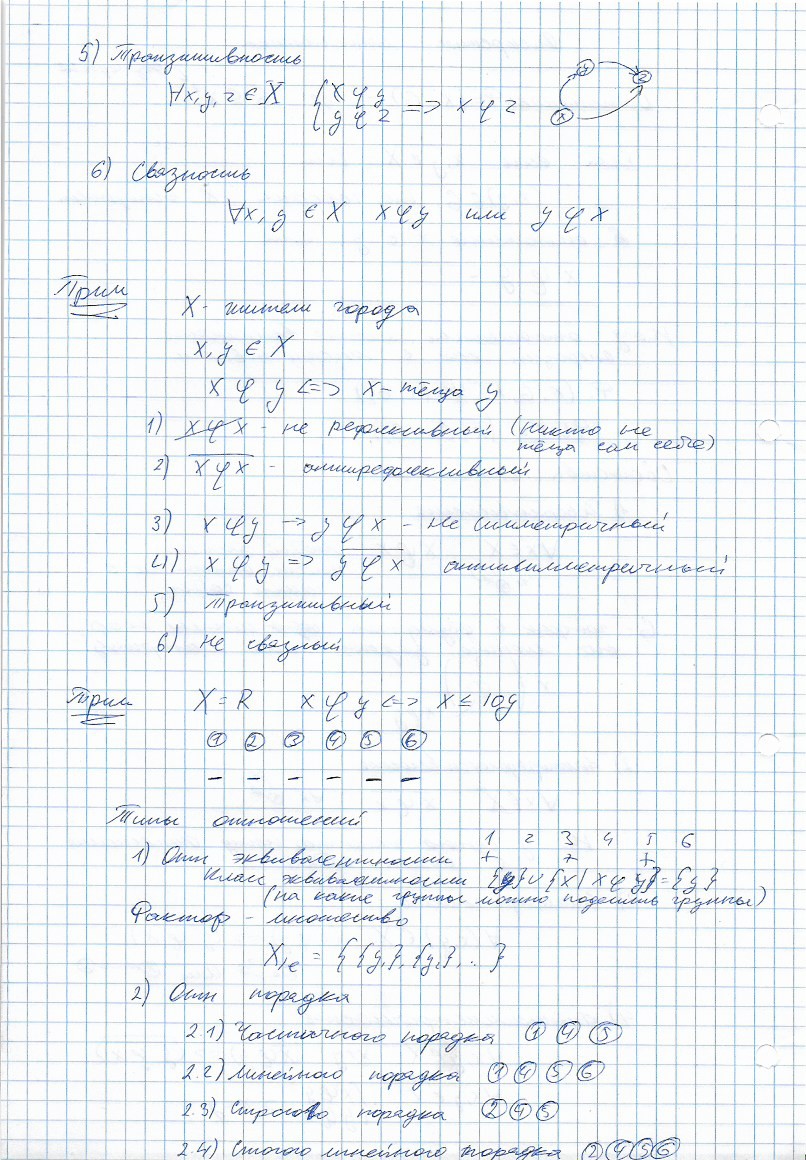 5) Транзитивность
∀x, y, z ∈ X { x φ y
y φ z => x φ z
y z x
6) Связность
∀x, y ∈ X x φ y или y φ x
Прим
X - жители города
x, y ∈ X
x φ y <=> x - тёща y
1) x φ x - не рефлективный (никто не
тёща сам себе)
2) x φ x - антирефлективный
3) x φ y -> y φ x - не симметричный
4) x φ y => y φ x антисимметричный
5) Транзитивный
6) Не связный
Прим X = R x φ y <=> x ≤ 10y
① ② ③ ④ ⑤ ⑥
– – – – – –
Типы отношений
1 2 3 4 5 6
1) Отн эквивалентности + + +
Класс эквивалентности {y} ∪ {x | x φ y} = {y}
(на какие группы можно поделить группы)
Фактор - множество
X/e = { {y,}, {y,}, .. }
2) Отн порядка
2.1) Частичного порядка ① ④ ⑤
2.2) Линейного порядка ① ④ ⑤ ⑥
2.3) Строгого порядка ② ④ ⑤
2.4) Стогого линейного порядка ② ④ ⑤ ⑥